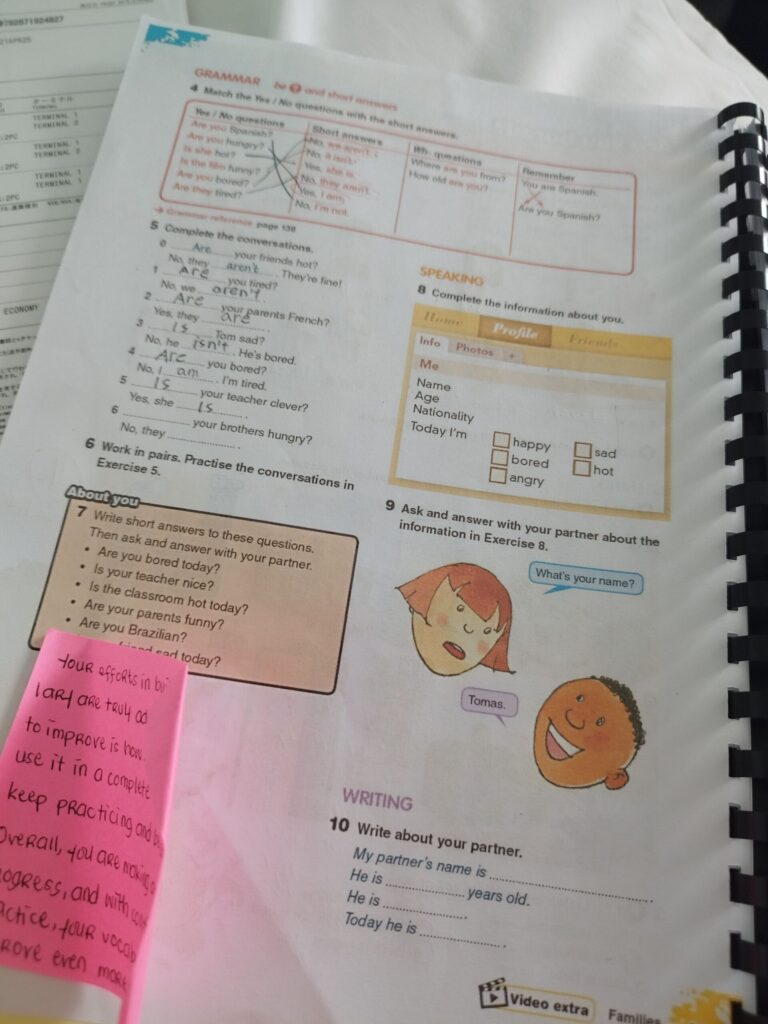 9782671924827
21APR25
TERMINAL
TERMINAL 1
TERMINAL 2
:2PC
TERMINAL 1
TERMINAL 2
:2PC
TERMINAL 1
TERMINAL 1
:2PC
ECONOMY
GRAMMAR be ? and short answers
4 Match the Yes / No questions with the short answers.
Yes / No questions
Are you Spanish?
Are you hungry?
Is she hot?
Is the film funny?
Are you bored?
Are they tired?
Short answers
No, we aren't.
No, it isn't.
Yes, she is.
No, they aren't.
Yes, I am.
No, I'm not.
Wh- questions
Where are you from?
How old are you?
Remember
You are Spanish.
Are you Spanish?
→ Grammar reference page 138
5 Complete the conversations.
0 Are your friends hot?
No, they aren't. They're fine!
1 Are you tired?
No, we aren't.
2 Are your parents French?
Yes, they are.
3 Is Tom sad?
No, he isn't. He's bored.
4 Are you bored?
No, I am. I'm tired.
5 Is your teacher clever?
Yes, she Is.
6 your brothers hungry?
No, they
6 Work in pairs. Practise the conversations in
Exercise 5.
About you
7 Write short answers to these questions.
Then ask and answer with your partner.
• Are you bored today?
• Is your teacher nice?
• Is the classroom hot today?
• Are your parents funny?
• Are you Brazilian?
friend sad today?
Your efforts in
lary are truly
to improve is
use it in a complete
keep practicing and
Overall, you are making
ogress, and with
actice, your vocab
rove even more
SPEAKING
8 Complete the information about you.
Home Profile Friends
Info Photos +
Me
Name
Age
Nationality
Today I'm
happy sad
bored hot
angry
9 Ask and answer with your partner about the
information in Exercise 8.
What's your name?
Tomas.
WRITING
10 Write about your partner.
My partner's name is
He is years old.
He is
Today he is
Video extra Families